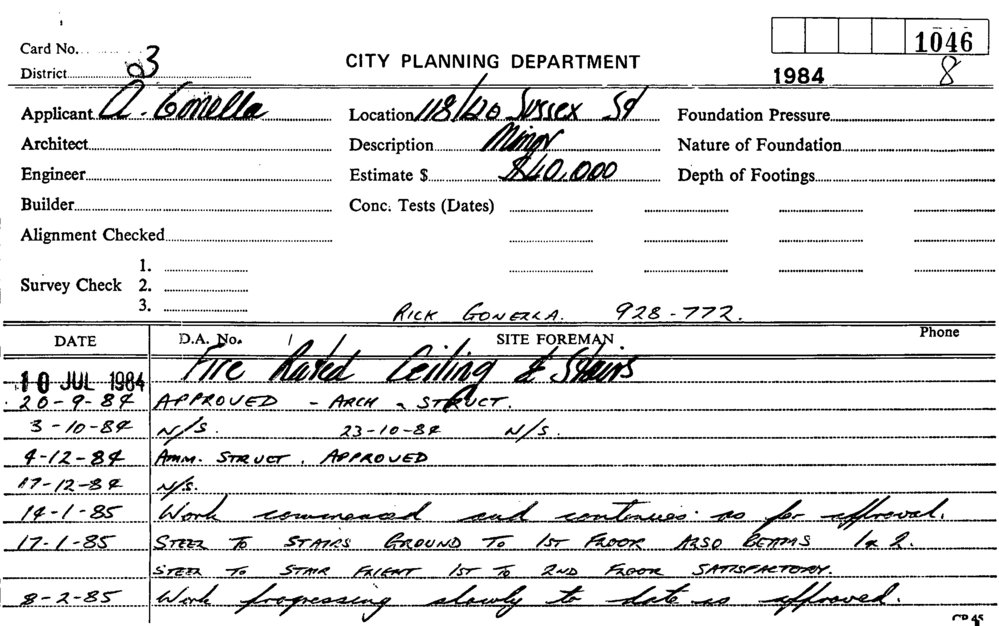 1046
Card No. 3
CITY PLANNING DEPARTMENT
District 03
1984 8
Applicant A. Gonella Location 118/120 Sussex St Foundation Pressure
Architect Description Minor Nature of Foundation
Engineer Estimate $ $40,000 Depth of Footings
Builder Conc. Tests (Dates)
Alignment Checked
1.
Survey Check 2.
3.
RICK GONELLA. 928-772.
DATE D.A. No. SITE FOREMAN Phone
10 JUL 1984 Fire Rated Ceiling & Stairs
20-9-84 APPROVED - ARCH & STRUCT.
3-10-84 N/S. 23-10-84 N/S.
4-12-84 AMM. STRUCT. APPROVED
17-12-84 N/S.
14-1-85 Work commenced and continues as per approval.
17-1-85 STEEL TO STAIRS GROUND TO 1ST FLOOR ALSO BEAMS 1 & 2.
STEEL TO STAIR FLIGHT 1ST TO 2ND FLOOR SATISFACTORY.
8-2-85 Work progressing slowly to date as approved.